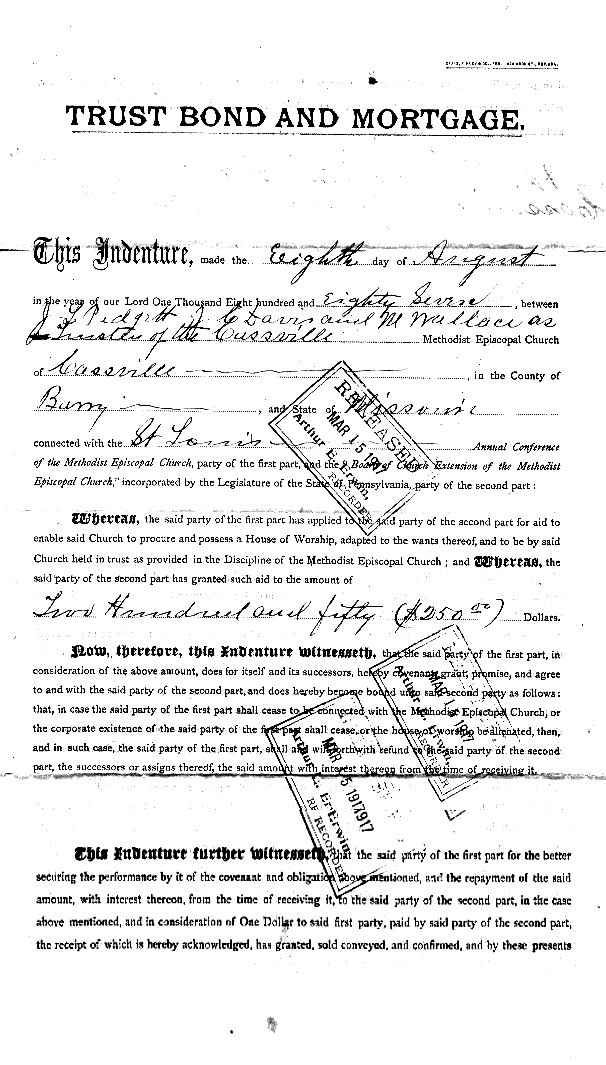 TRUST BOND AND MORTGAGE.
This Indenture, made the Eighth day of August
in the year of our Lord One Thousand Eight hundred and Eighty Seven, between
J. C Davis and M Wallace as
Trustees of the Cassville Methodist Episcopal Church
of Cassville, in the County of
Barry, and State of Missouri
connected with the St Louis Annual Conference
of the Methodist Episcopal Church, party of the first part, and the "Board of Church Extension of the Methodist
Episcopal Church," incorporated by the Legislature of the State of Pennsylvania, party of the second part:
Whereas, the said party of the first part has applied to the said party of the second part for aid to
enable said Church to procure and possess a House of Worship, adapted to the wants thereof, and to be by said
Church held in trust as provided in the Discipline of the Methodist Episcopal Church; and Whereas, the
said party of the second part has granted such aid to the amount of
Two Hundred and fifty ($250 00) Dollars.
Now, therefore, this Indenture witnesseth, that the said party of the first part, in
consideration of the above amount, does for itself and its successors, hereby covenant, grant, promise, and agree
to and with the said party of the second part, and does hereby become bound unto said second party as follows:
that, in case the said party of the first part shall cease to be connected with the Methodist Episcopal Church, or
the corporate existence of the said party of the first part shall cease, or the house of worship be alienated, then,
and in such case, the said party of the first part, shall and will forthwith refund to the said party of the second
part, the successors or assigns thereof, the said amount with interest thereon from the time of receiving it.
This Indenture further witnesseth, that the said party of the first part for the better
securing the performance by it of the covenant and obligation above mentioned, and the repayment of the said
amount, with interest thereon, from the time of receiving it, to the said party of the second part, in the case
above mentioned, and in consideration of One Dollar to said first party, paid by said party of the second part,
the receipt of which is hereby acknowledged, has granted, sold conveyed, and confirmed, and by these presents
RELEASED
MAR 15 1917
Arthur E. Erwin,
RECORDER
MAR 1917
RECORDER
MAR 5 1917
Erwin
RECORDER